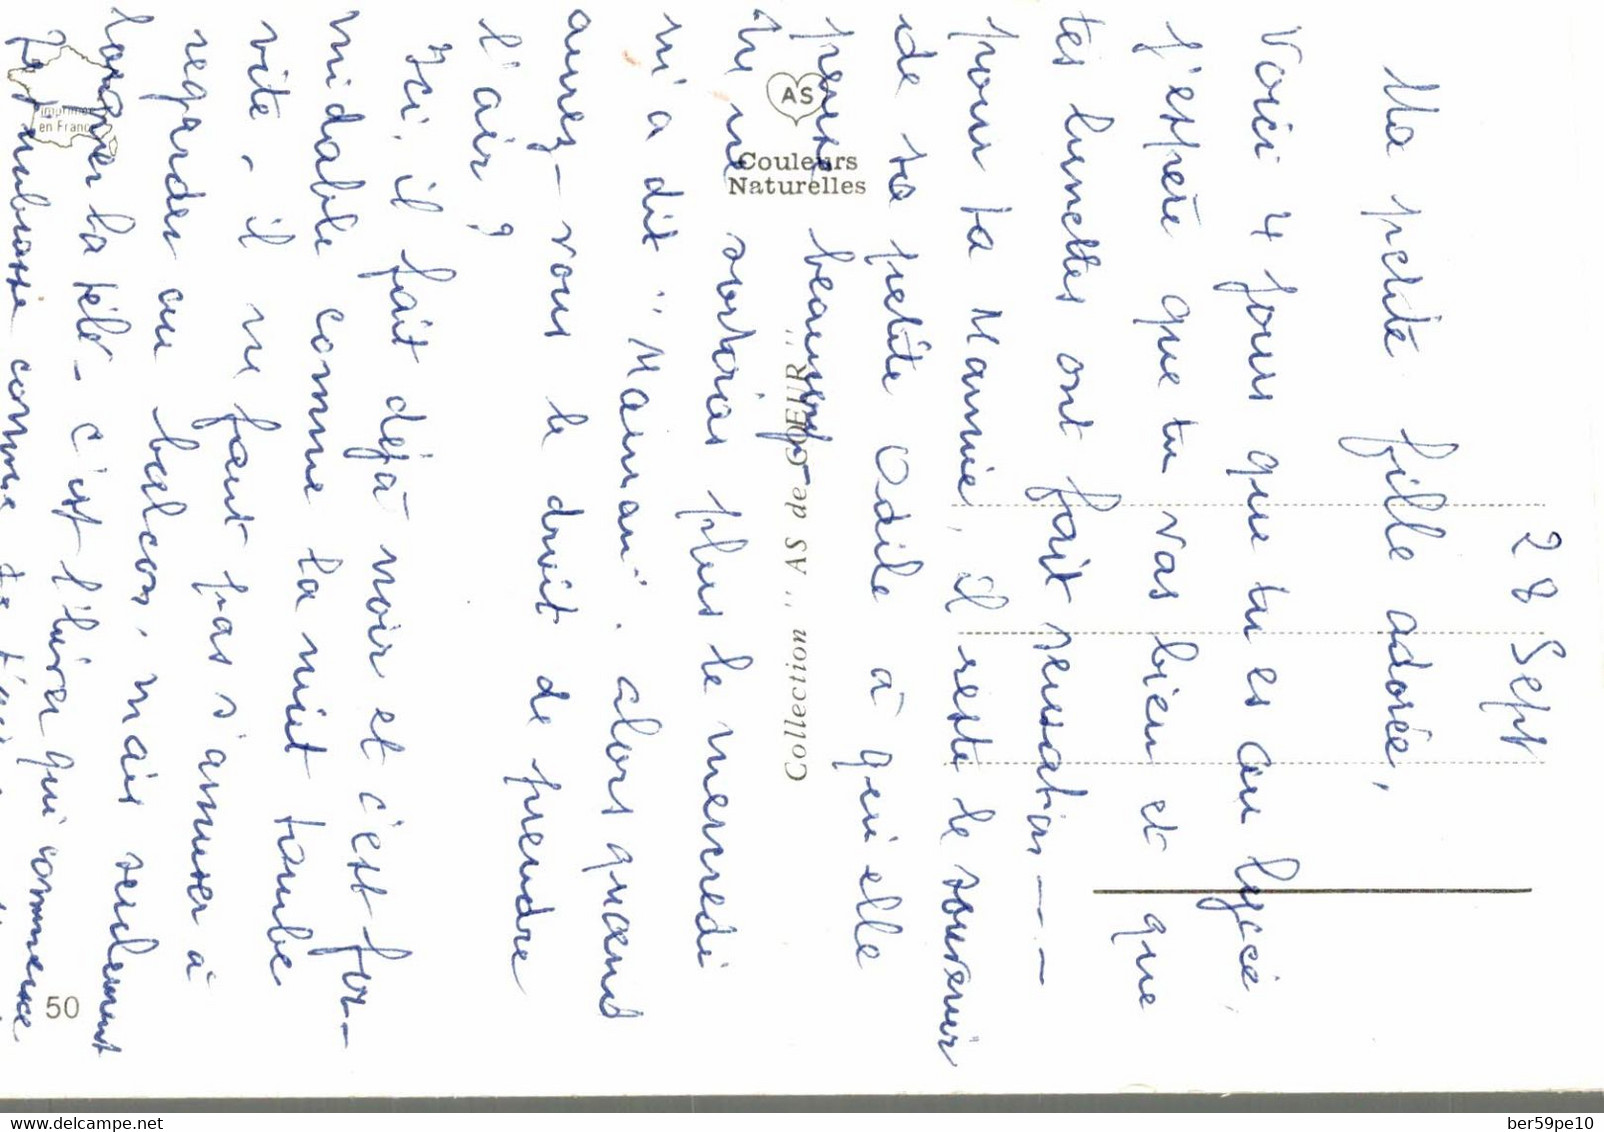 28 Sept
Ma petite fille adorée,
Voici 4 jours que tu es au lycée,
j'espère que tu vas bien et que
tes lunettes ont fait sensation ---
pour ta Mannie, il reste le souvenir
de sa petite Odile à qui elle
pense beaucoup -
tu ne sortirais plus le mercredi
m'a dit "Maman". alors quand
aurez-vous le droit de prendre
l'air ?
Ici, il fait déjà noir et c'est for-
midable comme la nuit tombe
vite, il ne faut pas s'amuser à
regarder au balcon, mais seulement
la télé - c'est l'hiver qui commence
Je t'embrasse comme je t'aime
AS
Couleurs
Naturelles
Collection "AS de CŒUR"
Imprimé
en France
50
www.delcampe.net
ber59pe10